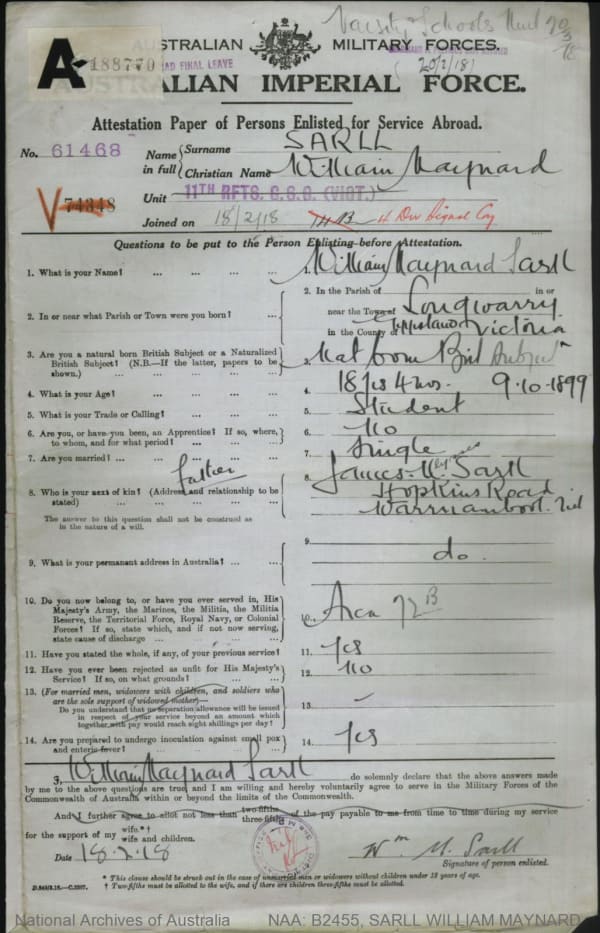 Varsity Schools
A- 188770
AUSTRALIAN MILITARY FORCES.
HAD FINAL LEAVE
(20/2/18)
AUSTRALIAN IMPERIAL FORCE.
Attestation Paper of Persons Enlisted for Service Abroad.
No. 61468
Name in full { Surname SARLL
Christian Name William Maynard
Unit 11TH RFTS. G.S.G. (VICT.)
V 74348
Joined on 18/2/18 4 Div Signal Coy
Questions to be put to the Person Enlisting before Attestation.
1. What is your Name? ... ... ... ... 1. William Maynard Sarll
2. In or near what Parish or Town were you born? ... 2. In the Parish of in or
near the Town of Longwarry
in the County of Gippsland Victoria
3. Are you a natural born British Subject or a Naturalized
British Subject? (N.B.—If the latter, papers to be
shown.) ... ... ... ... 3. Nat born Brit Subject
4. What is your Age? ... ... ... ... 4. 18 yrs 4 mos. 9-10-1899
5. What is your Trade or Calling? ... ... ... 5. Student
6. Are you, or have you been, an Apprentice? If so, where,
to whom, and for what period? ... ... 6. No
7. Are you married? ... ... ... ... 7. Single
Father
8. Who is your next of kin? (Address and relationship to be
stated) ... ... ... ... 8. James Sarll
Hopkins Road
Warrnambool
The answer to this question shall not be construed as
in the nature of a will.
9. What is your permanent address in Australia? ... ... 9. do.
10. Do you now belong to, or have you ever served in, His
Majesty's Army, the Marines, the Militia, the Militia
Reserve, the Territorial Force, Royal Navy, or Colonial
Forces? If so, state which, and if not now serving,
state cause of discharge ... ... ... 10. Area 72B
11. Have you stated the whole, if any, of your previous service? 11. Yes
12. Have you ever been rejected as unfit for His Majesty's
Service? If so, on what grounds? ... ... 12. No
13. (For married men, widowers with children, and soldiers who
are the sole support of widowed mother)—
Do you understand that no separation allowance will be issued
in respect of your service beyond an amount which
together with pay would reach eight shillings per day? 13. –
14. Are you prepared to undergo inoculation against small pox
and enteric fever? ... ... ... 14. Yes
I, William Maynard Sarll do solemnly declare that the above answers made
by me to the above questions are true, and I am willing and hereby voluntarily agree to serve in the Military Forces of the
Commonwealth of Australia within or beyond the limits of the Commonwealth.
And I further agree to allot not less than two-fifths three-fifths of the pay payable to me from time to time during my service
for the support of my wife.*† wife and children.
Date 18.2.18
Wm M. Sarll
Signature of person enlisted.
* This clause should be struck out in the case of unmarried men or widowers without children under 18 years of age.
† Two-fifths must be allotted to the wife, and if there are children three-fifths must be allotted.
National Archives of Australia NAA: B2455, SARLL WILLIAM MAYNARD